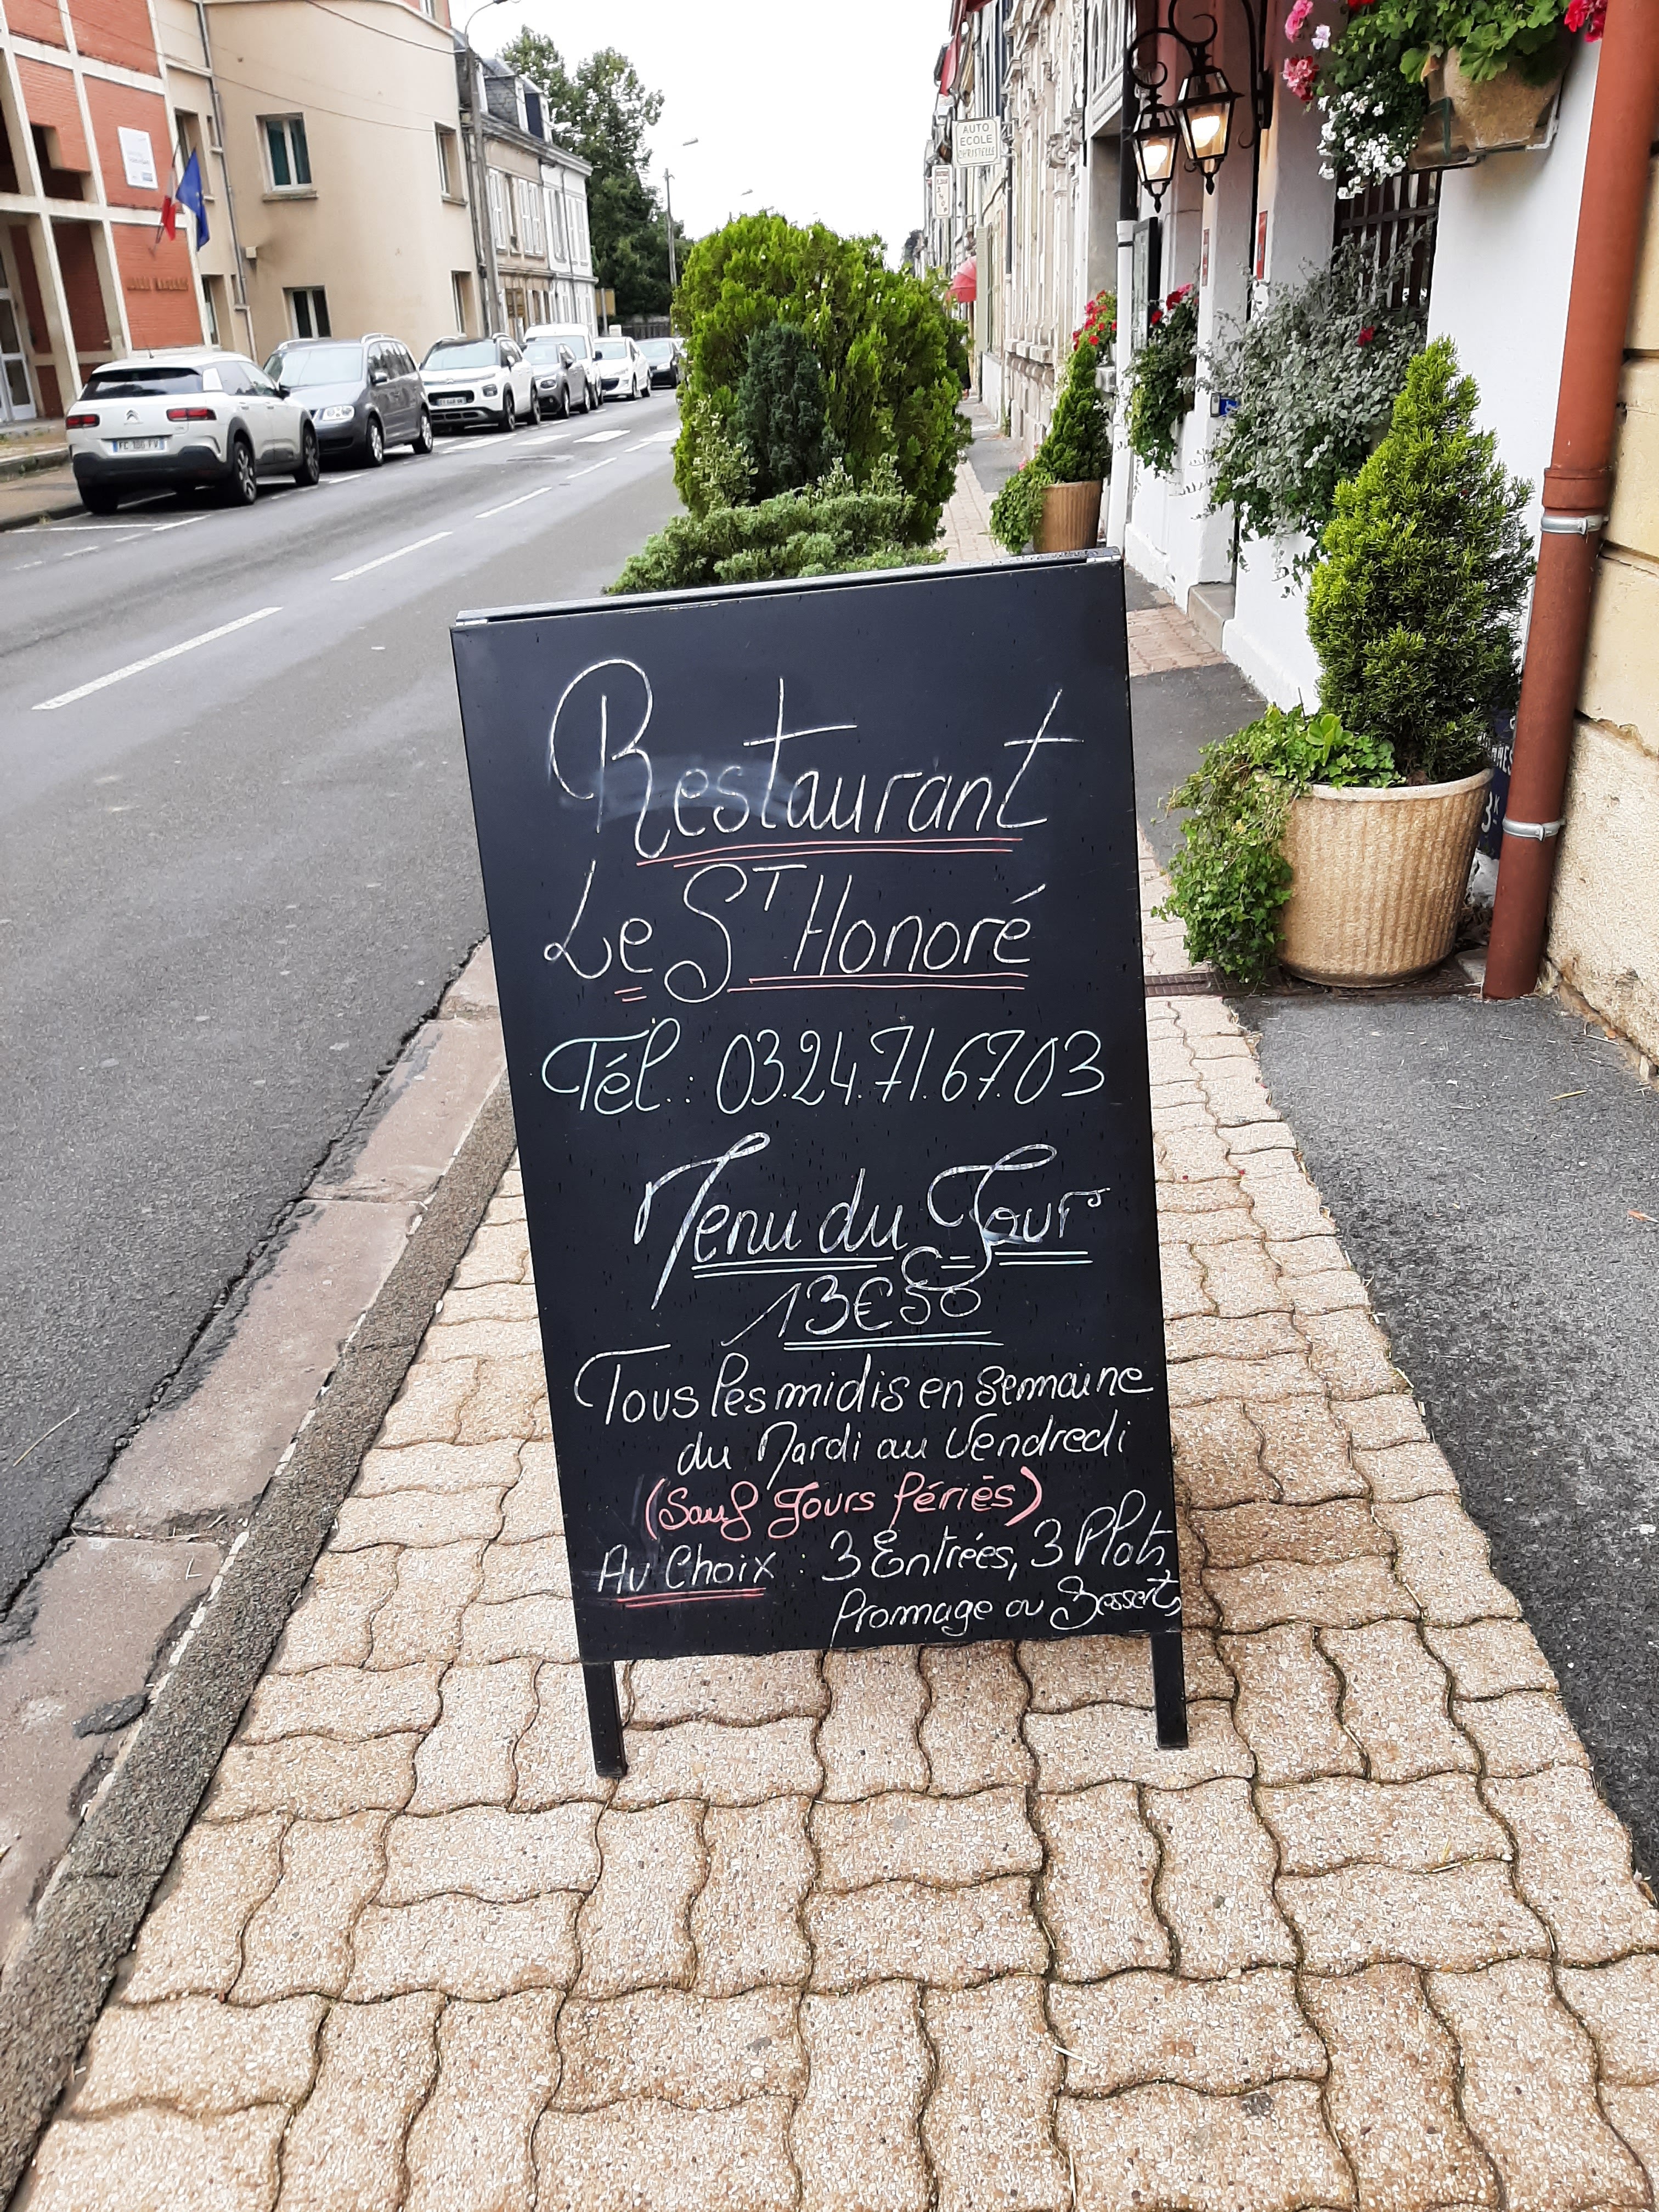 AUTO
ECOLE
CHRISTELLE
Restaurant
Le ST Honoré
Tél.: 03.24.71.67.03
Menu du Jour
13€50
Tous les midis en semaine
du Mardi au Vendredi
(Sauf Jours fériés)
Au Choix : 3 Entrées, 3 Plats,
fromage ou Desserts